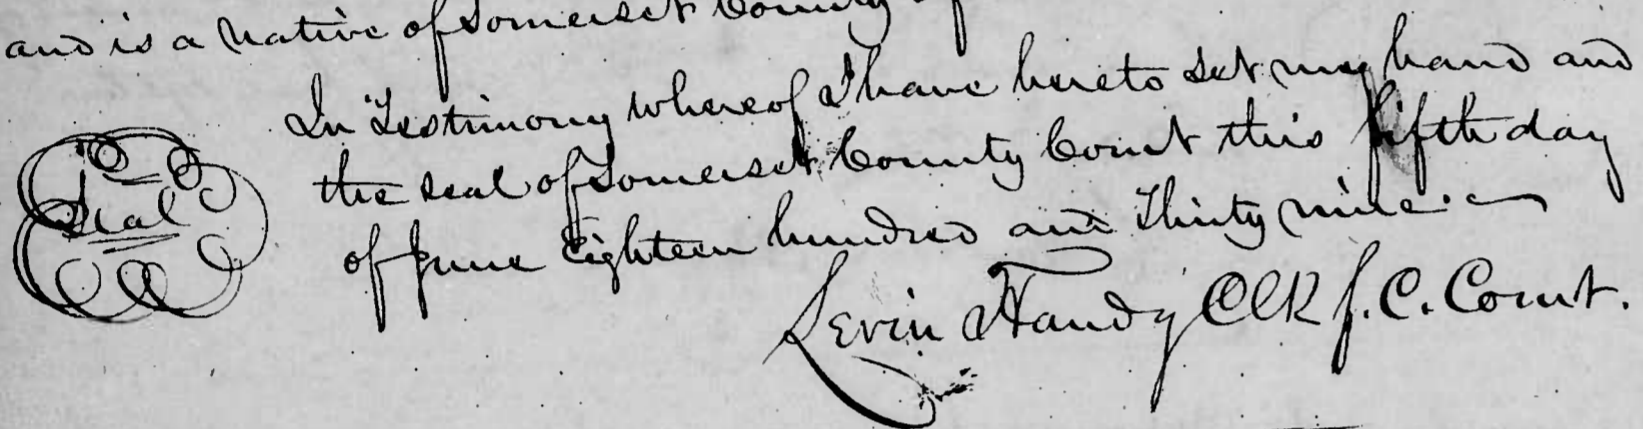 and is a native of Somerset County
In Testimony whereof I have hereto set my hand and
Seal
the seal of Somerset County Court this fifth day
of June Eighteen hundred and Thirty nine.
Levin Handy Clk S. C. Court.